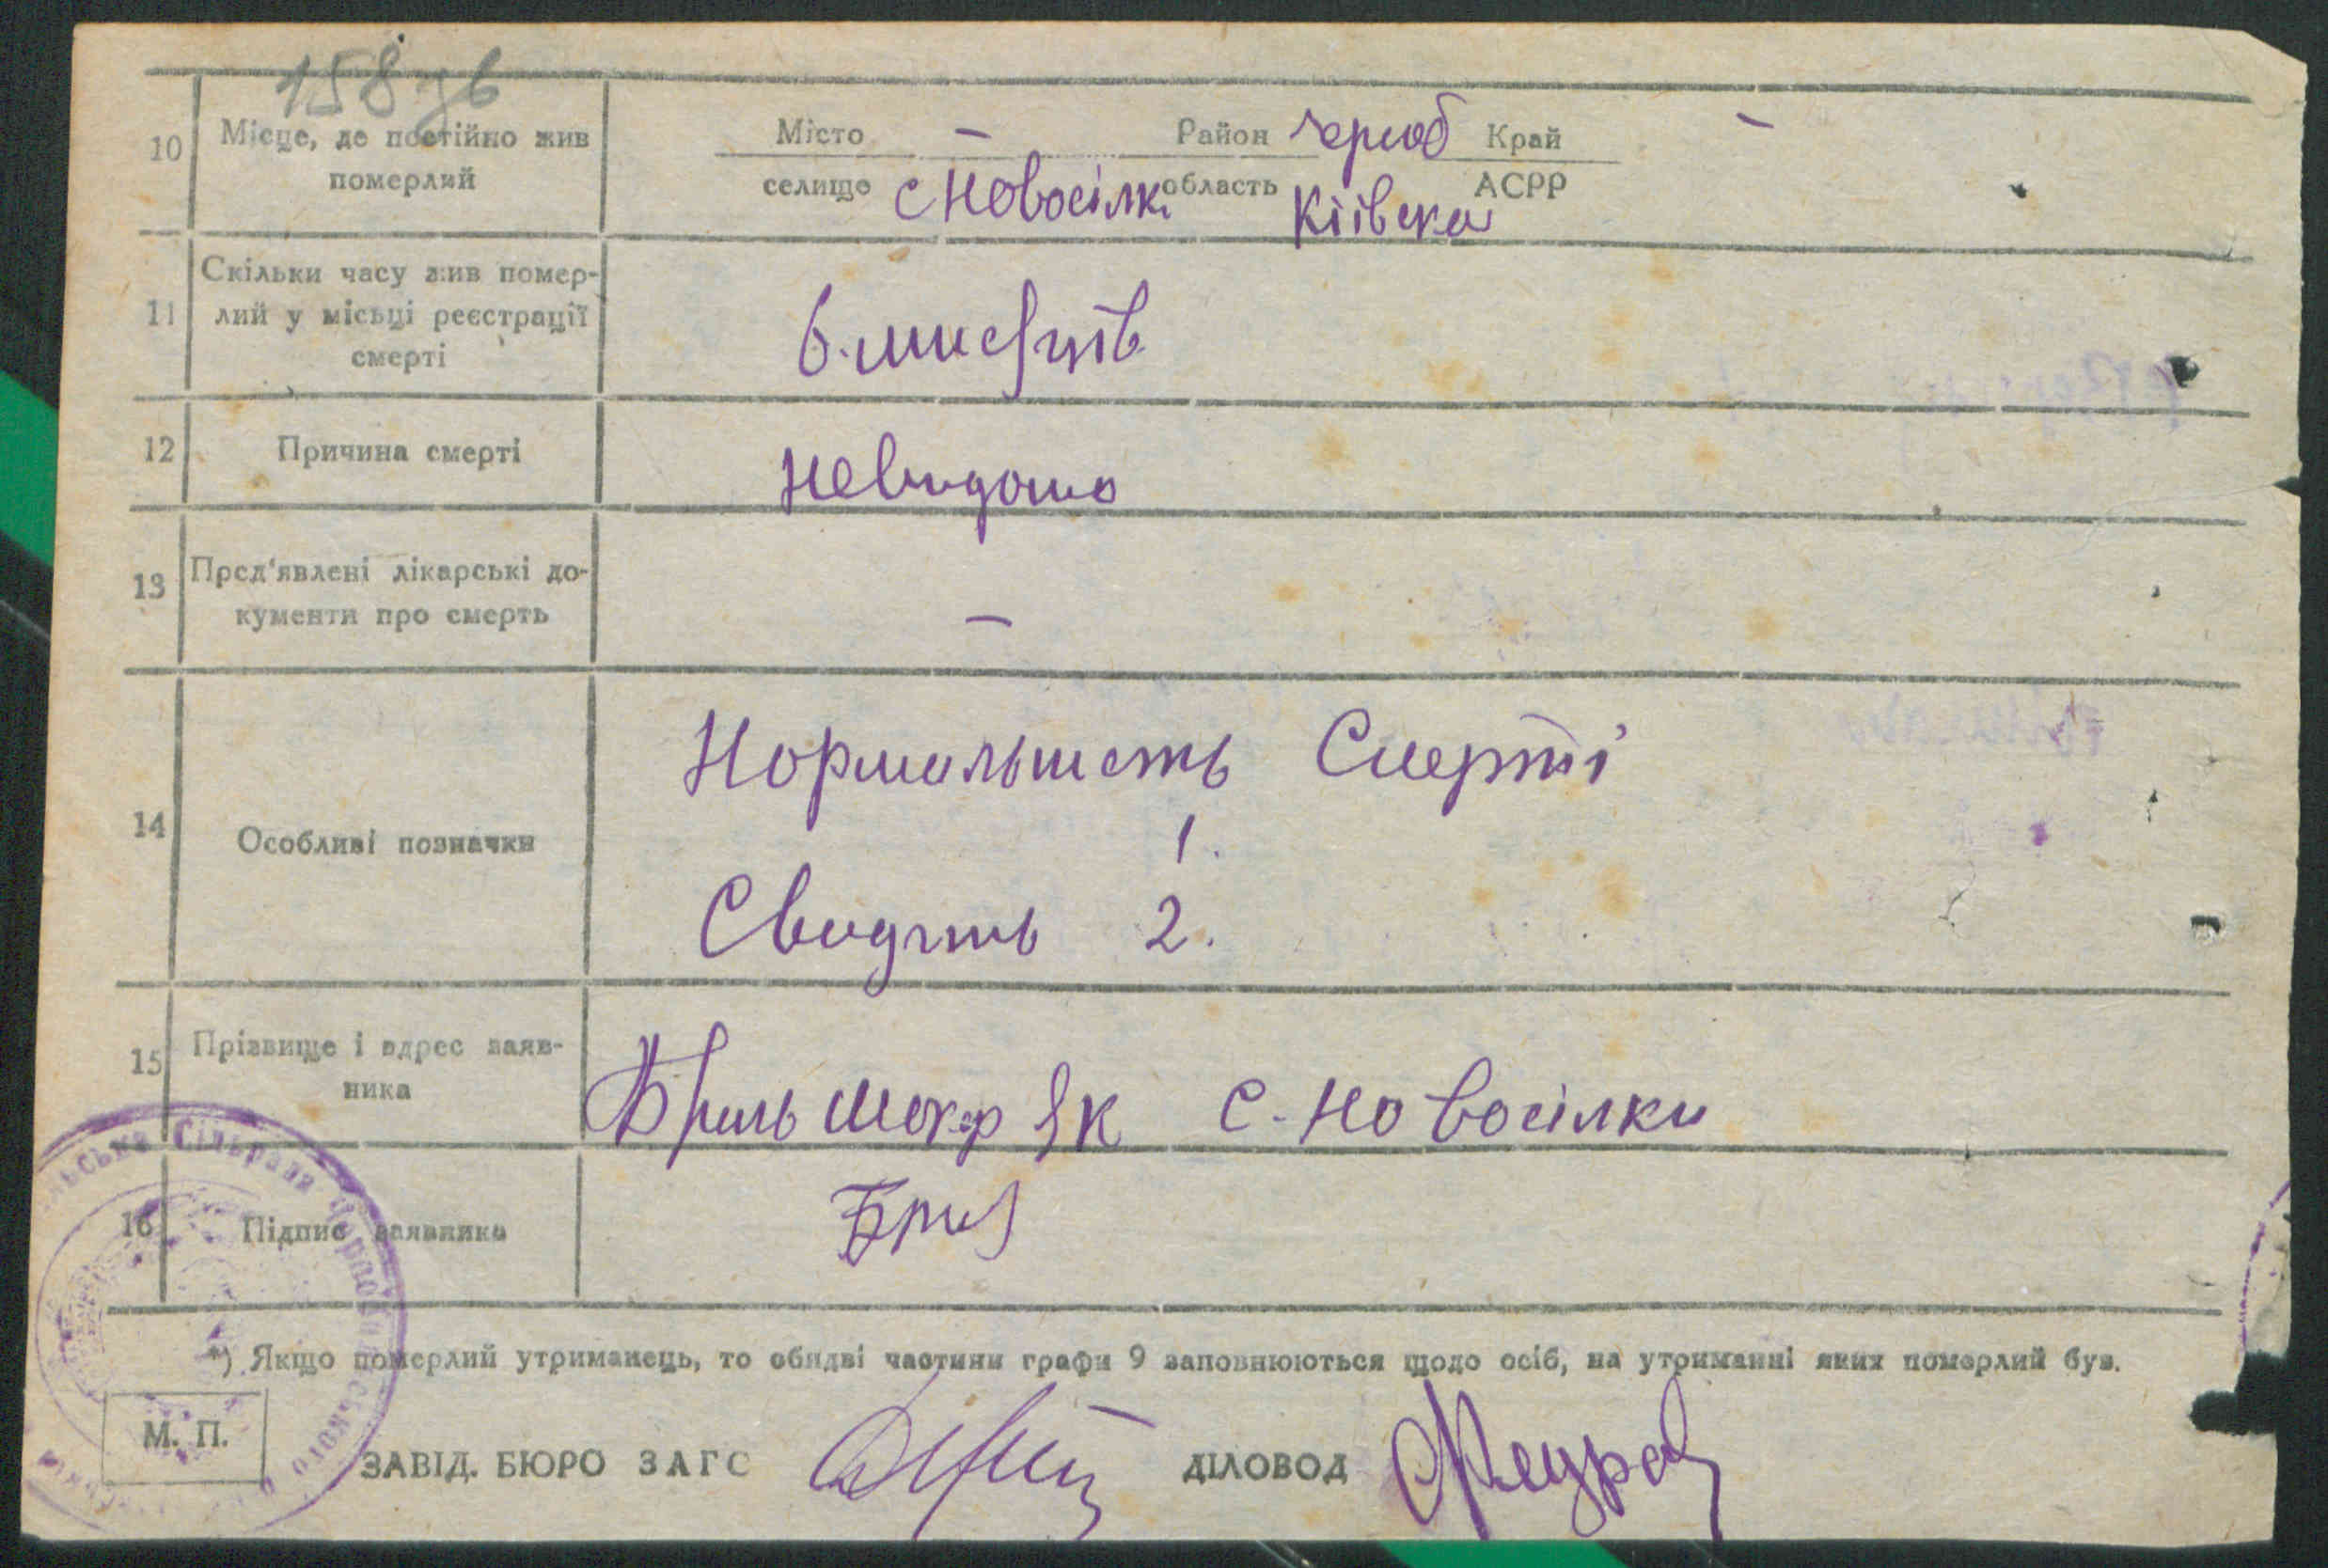 158 зв
10 Місце, де постійно жив
померлий
Місто — Район Чорноб Край —
селище с Новосілки область Київска АСРР
11 Скільки часу жив помер-
лий у місьці реєстрації
смерті
6. мисяців
12 Причина смерті
Невидомо
13 Пред'явлені лікарські до-
кументи про смерть
—
14 Особливі позначки
Нормальність Смерті
1.
Свидять 2.
15 Прізвище і адрес заяв-
ника
Бриль Мокр Як с. Новосілки
16 Підпис заявника
Брил
*) Якщо померлий утриманець, то обидві частини графи 9 заповнюються щодо осіб, на утриманні яких померлий був.
М. П.
ЗАВІД. БЮРО ЗАГС ДІЛОВОД
Сільрада